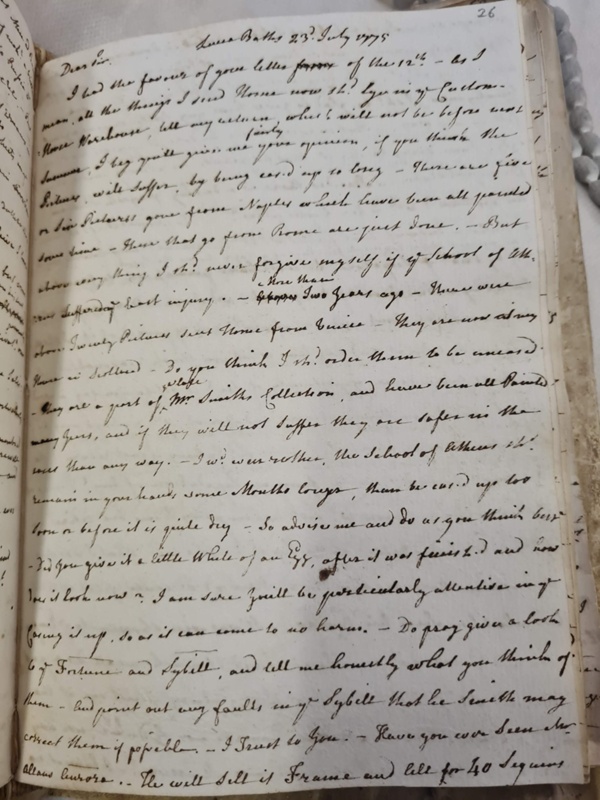 26
Lucca Baths 23d. July 1775
Dear Sir.
I had the favour of your letter of the 12th. – As I
mean, all the things I send Home now shd. lye in ye Custom
House Warehouse, till my return, which will not be before next
Summer, I beg you'll give me your opinion, if you think the
Pictures will Suffer, by being cas'd up so long – There are five
or Six Pictures gone from Naples which have been all painted
some time – Those that go from Rome are just done. – But
above every thing I shd. never forgive myself if ye School of Ath
ens Suffered ye least injury. – More than Two Years ago – There were
above Twenty Pictures sent Home from Venice – They are now at my
House in Scotland – Do you think I shd. order them to be uncased
– They are a part of ye late Mr. Smiths Collection, and have been all Painted
many Years, and if they will not Suffer they are safer in the
cases than any way. – I wd. much rather, the School of Athens shd.
remain in your hands some Months longer, than be cas'd up too
soon or before it is quite dry – So advise me and do as you think best
– Did You give it a little White of an Egg, after it was finish'd and how
does it look now? I am sure you'll be particularly attentive in ye
Casing it up, so as it can come to no harm. – Do pray give a look
to ye Fortune and Sybill, and tell me honestly what you think of
them – And point out any faults in ye Sybill that he Smith may
correct them if possible. – I Trust to You. – Have you ever Seen
Aurora. – He will sell it Frame and all for 40 Sequins